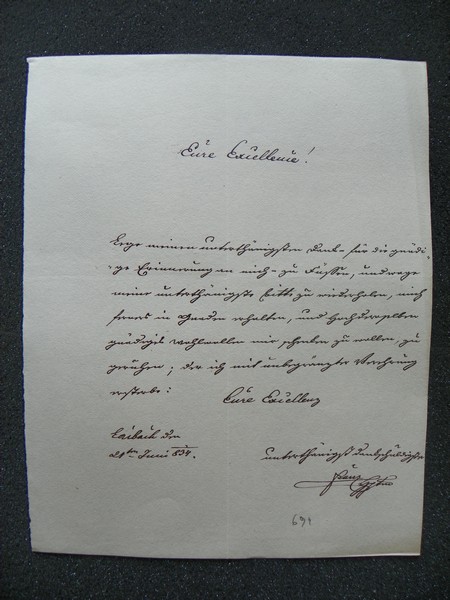 Eure Excellenz!
Lege meinen unterthänigsten Dank für die gnädi-
ge Erinnerung an mich zu Füssen, und wage
meine unterthänigste Bitte zu wiederholen, mich
ferner in Gnaden erhalten, und Hochderselben
gnädiges Wohlwollen mir schenken zu wollen zu
geruhen; der ich mit unbegränzter Verehrung
ersterbe:
Eure Excellenz
Laibach den
20ten Juni 834.
unterthänigst dankschuldigster
Franz
691